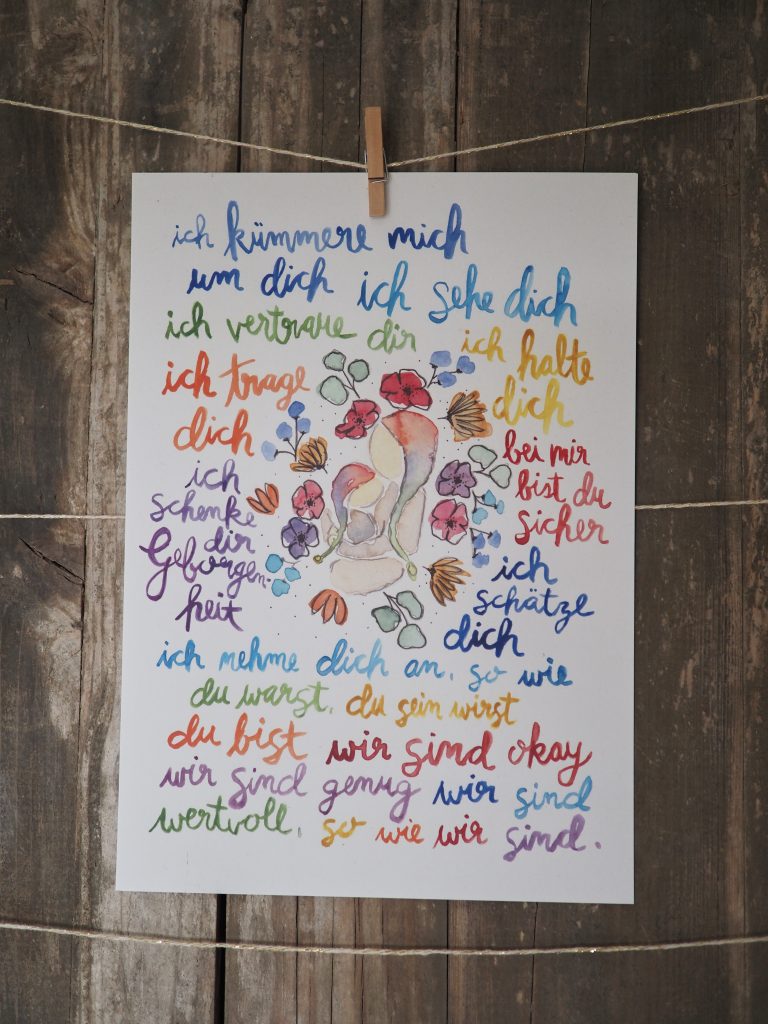 ich kümmere mich
um dich ich sehe dich
ich vertraue dir
ich halte
dich
ich trage
dich
bei mir
bist du
sicher
ich
schenke
dir
Geborgen-
heit
ich
schätze
dich
ich nehme dich an, so wie
du warst, du sein wirst
du bist wir sind okay
wir sind genug wir sind
wertvoll, so wie wir sind.